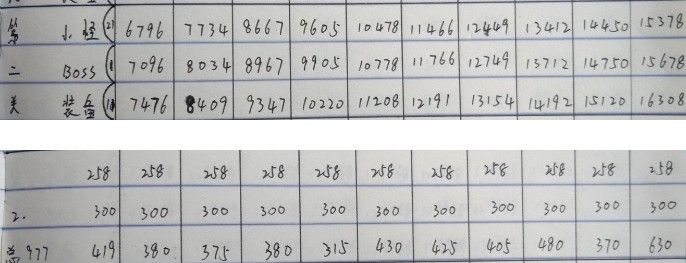 第 小怪(21 6796 7734 8667 9605 10478 11466 12449 13412 14450 15378
二 Boss(1 7096 8034 8967 9905 10778 11766 12749 13712 14750 15678
关 装备(11 7476 8409 9347 10220 11208 12191 13154 14192 15120 16308
258 258 258 258 258 258 258 258 258 258 258
2. 300 300 300 300 300 300 300 300 300 300 300
977 419 380 375 380 315 430 425 405 480 370 630